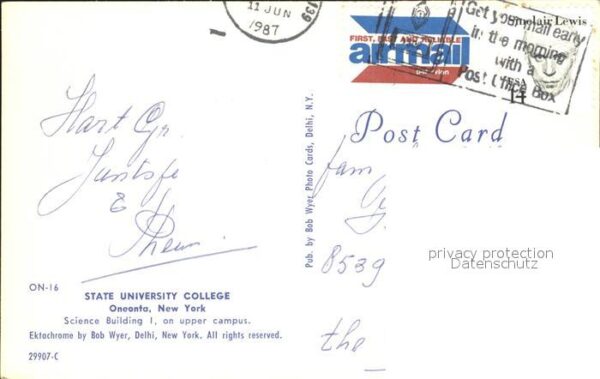 139
11 JUN
1987
FIRST, FAST AND RELIABLE
airmail
Sinclair Lewis
USA
14
Get your mail early
in the morning
with a
Post Office Box
Post Card
Hart Gr.
&
Fam
8539
the
Pub. by Bob Wyer, Photo Cards, Delhi, N.Y.
privacy protection
Datenschutz
ON-16
STATE UNIVERSITY COLLEGE
Oneonta, New York
Science Building I, on upper campus.
Ektachrome by Bob Wyer, Delhi, New York. All rights reserved.
29907-C